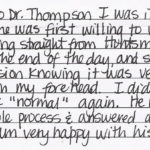 o Dr. Thompson I was i
e was first willing to
ng straight from Hunts
the end of the day, and s
sion knowing it was ve
m my forehead. I did
"normal" again. He
le process & answered a
um very happy with his